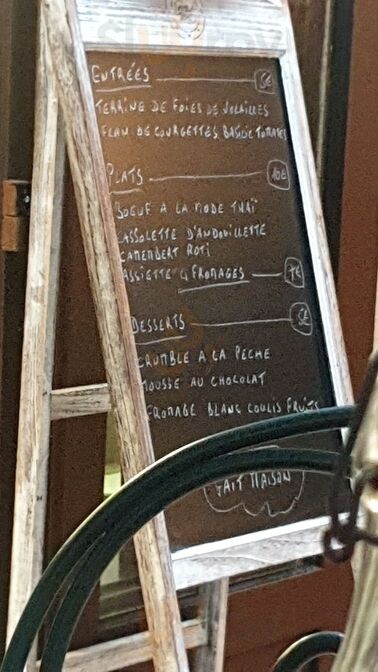 ENTRÉES 5€
TERRINE DE FOIES DE VOLAILLES
FLAN DE COURGETTES BASILIC TOMATES
PLATS 10€
BOEUF A LA MODE THAÏ
CASSOLETTE D'ANDOUILLETTE
CAMEMBERT ROTI
ASSIETTE 4 FROMAGES 7€
DESSERTS 5€
CRUMBLE A LA PECHE
MOUSSE AU CHOCOLAT
FROMAGE BLANC COULIS FRUITS
FAIT MAISON